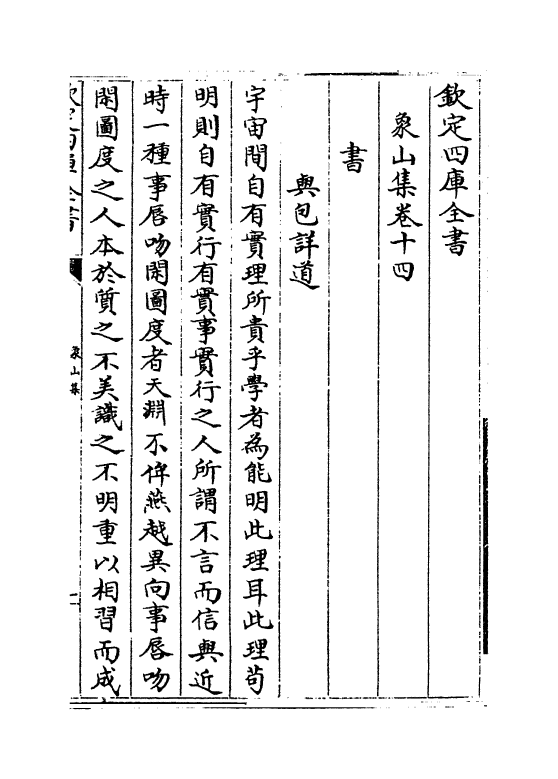 欽定四庫全書
象山集卷十四
書
與包詳道
宇宙間自有實理所貴乎學者為能明此理耳此理茍
明則自有實行有實事實行之人所謂不言而信與近
時一種事唇吻閑圖度者天淵不侔燕越異向事唇吻
閑圖度之人本於質之不美識之不明重以相習而成
欽定四庫全書
象山集